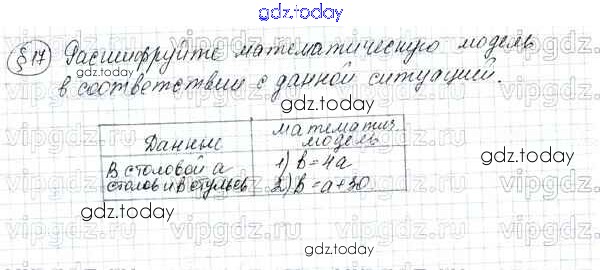 gdz.today
§17 Расшифруйте математическую модель
в соответствии с данной ситуацией.
gdz.today
gdz.today
Данные
математич.
модель
В столовой a
столов и в стульев
1) b=4a
2) b=a+30
gdz.today
gdz.today